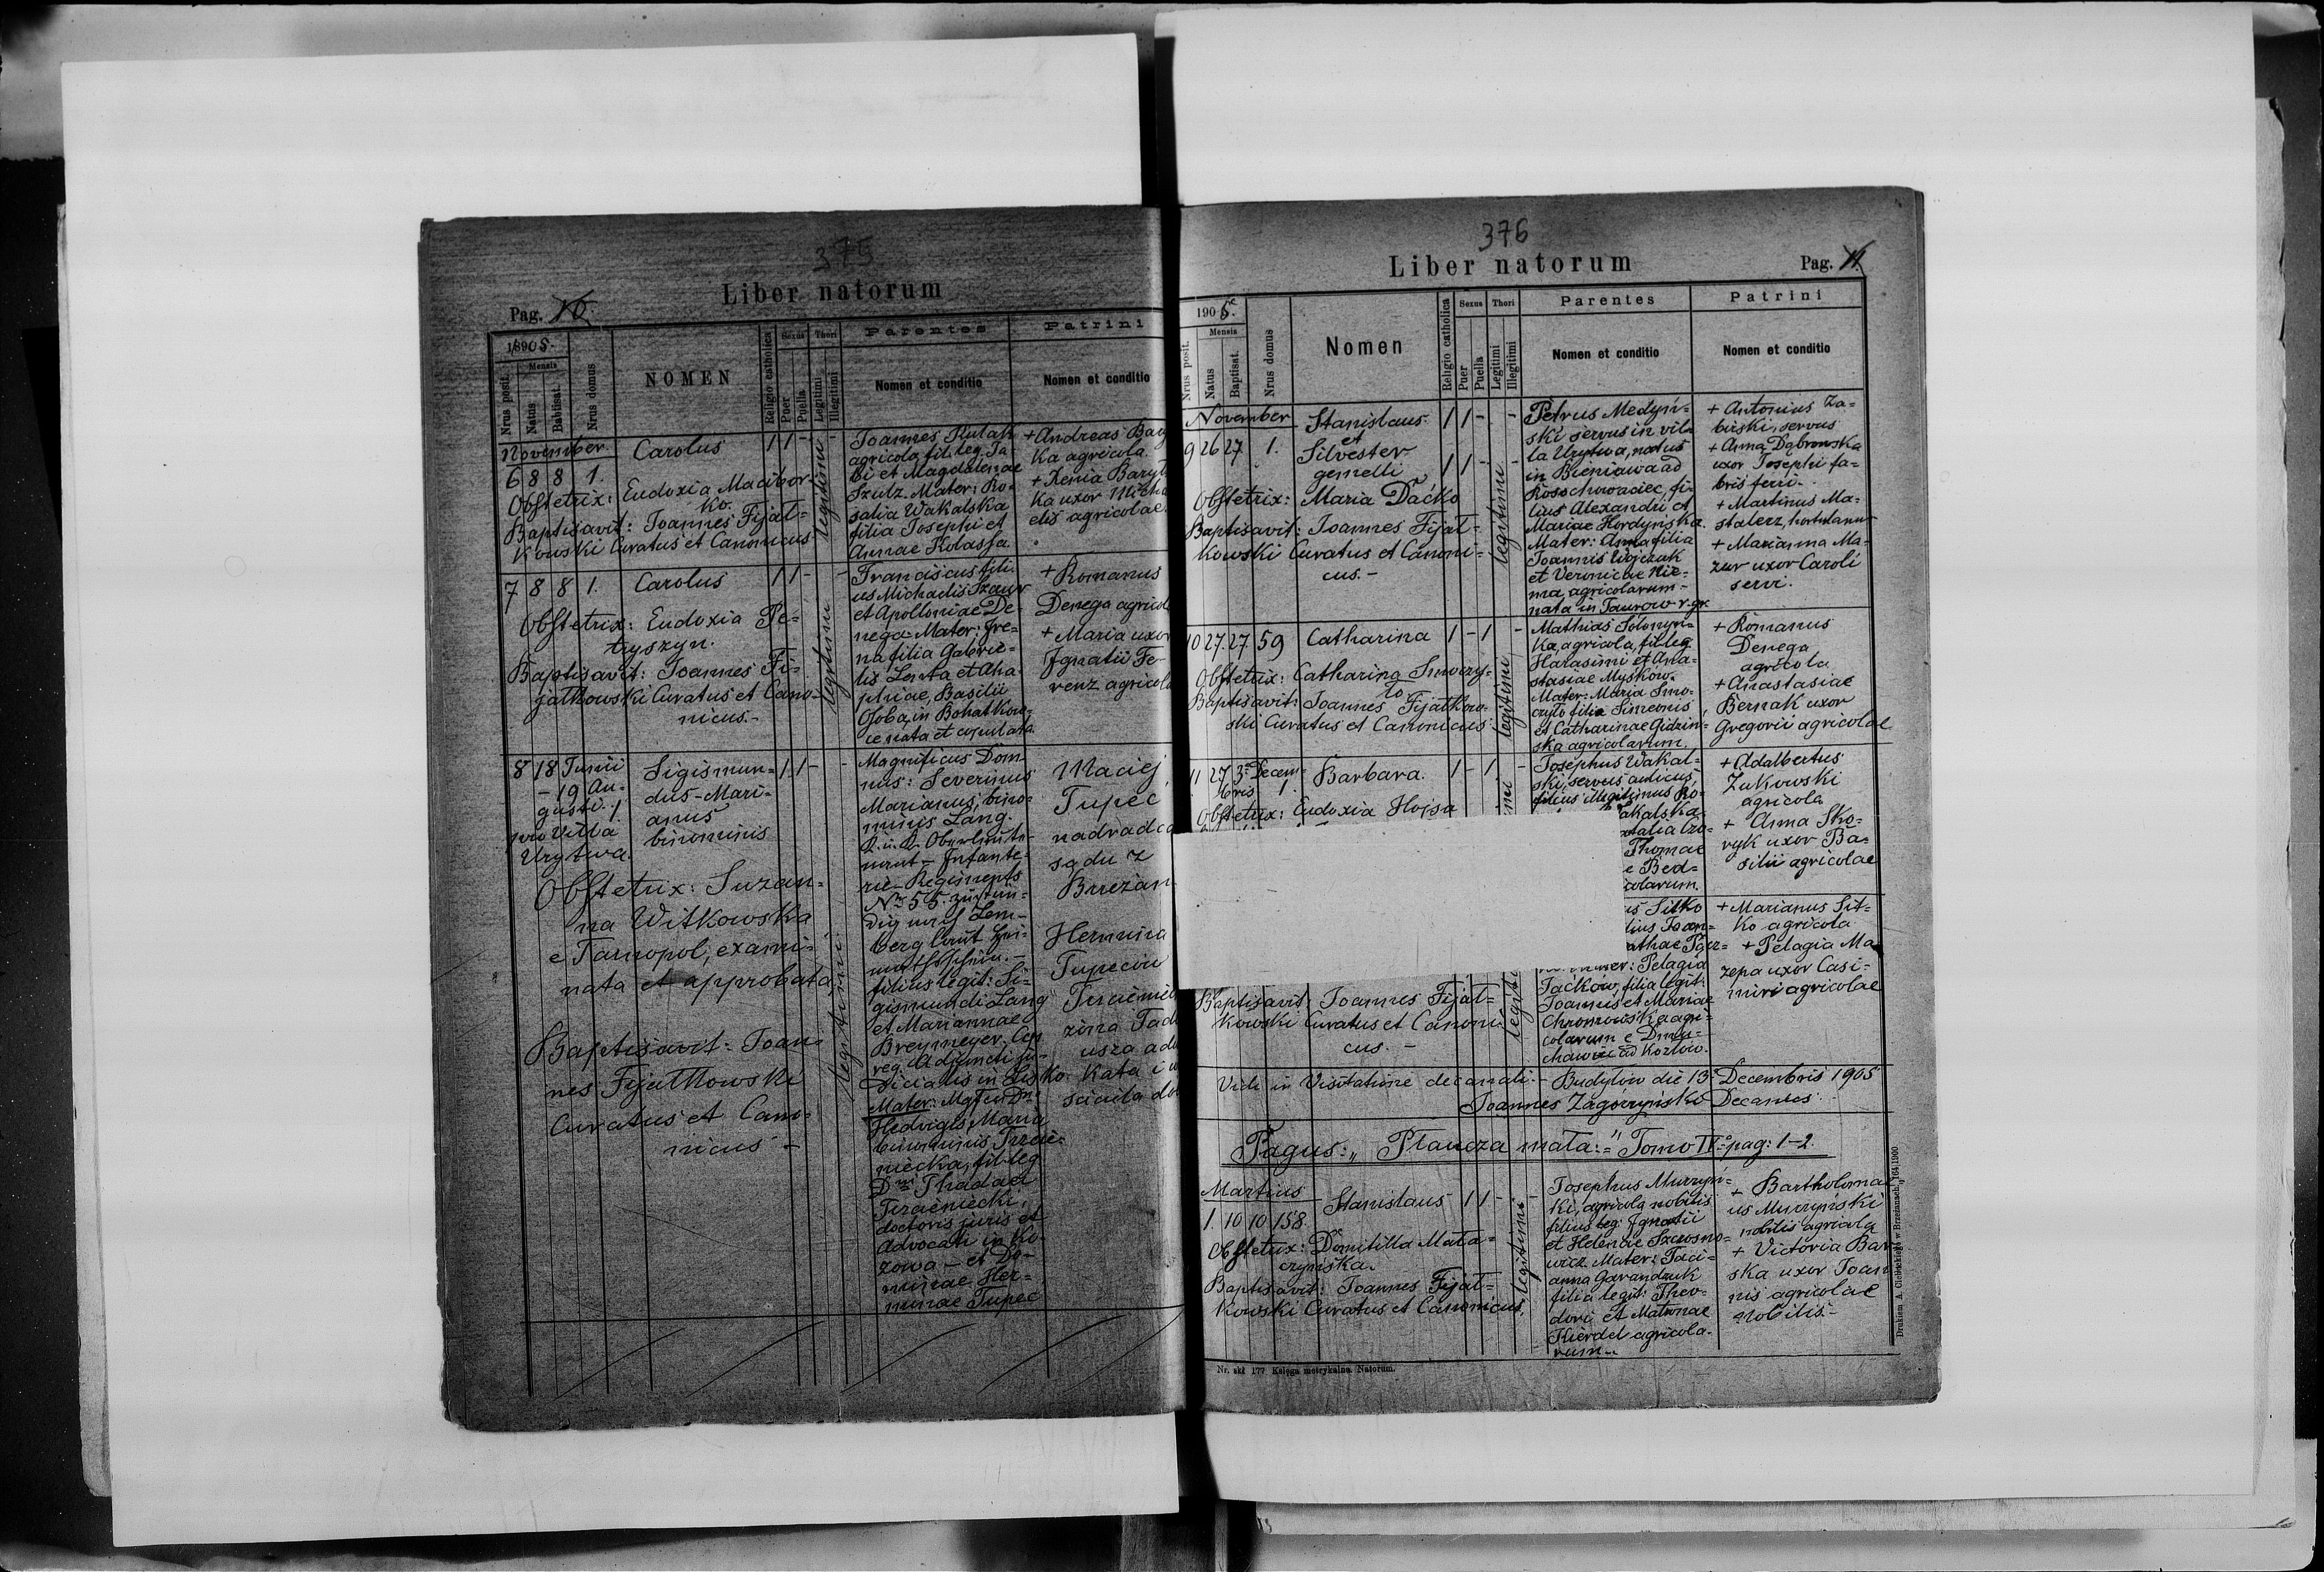 375
Liber natorum
Pag. 10.
1905.
Mensis
Nrus posit.
Natus
Babtisat.
Nrus domus
NOMEN
Religio catholica
Sexus
Puer
Puella
Thori
Legitimi
Illegitimi
Parentes
Nomen et conditio
Patrini
Nomen et conditio
November
6 8 8 1.
Carolus
1 1 - -
legitimi
Obstetrix: Eudoxia Macibor=
ko.
Baptisavit: Joannes Fijał=
kowski Curatus et Canonicus
Joannes Rutak
agricola, fil. leg. Ja-
bi et Magdalenae
Szulz. Mater: Ro-
salia Wakalska
filia Josephi et
Annae Kolassa
+ Andreas Bary
ka agricola
+ Xenia Baryl
ka uxor Micha
elis agricolae.
7 8 8 1.
Carolus
1 1 - -
legitimi
Obstetrix: Eudoxia Pe=
tryszyn.
Baptisavit: Joannes Fi=
jałkowski Curatus et Cano=
nicus.-
Franciscus fili-
us Michaelis Szaur
et Apolloniae De-
nega. Mater: Ire=
na filia Gabrie=
lis Lenta et Aha-
phiae, Basilii
Osoba, in Bohatkow-
ce nata et copulata
+ Romanus
Denega agricol
+ Maria uxor
Ignatii Fe-
renz agricola
8 18 Junii
- 19 Au-
gusti. 1
pro Villa
Urytwa.
Sigismun=
dus-Mari=
anus
binominis
1 1 - -
legitimi
Obstetrix: Suzan=
na Witkowska
e Tarnopol, exami=
nata et approbata
Baptisavit: Joan=
nes Fijałkowski
Curatus et Cano=
nicus -
Magnificus Domi
nus: Severinus
Marianus, bino-
minis Lang.
K. u. K. Oberleute-
nant - Infante-
rie - Regiments
Nr 55. zustän-
dig nach Lem-
berg laut Hei-
matsschein.-
filius legit: Si-
gismundi Lang
et Mariannae
Breymeyer. Ces
reg. Adjuncti ju-
dicialis in Lisko.
Mater: Mgfca Dna
Hedvigis, Maria
binominis Trzcie-
niecka, fil. leg.
Dni Thaddaei
Trzcieniecki,
doctoris juris et
Advocati in Ko-
zowa - et Do-
minae Her=
minae Tupec
Maciej
Tupec
nadradca
sądu z
Brzeżan
Hermina
Tupeciw
Trzcienie
zina Tade
usza adw
kata i w
sciciela do
376
Liber natorum
Pag. 11
1905.
Mensis
Nrus posit.
Natus
Baptisat.
Nrus domus
Nomen
Religio catholica
Sexus
Puer
Puella
Thori
Legitimi
Illegitimi
Parentes
Nomen et conditio
Patrini
Nomen et conditio
November
9 26 27 1.
Stanislaus
et
Silvester
gemelli
1 1 - -
1 1 - -
legitimi
Obstetrix: Maria Daćko
Baptisavit: Joannes Fijał=
kowski Curatus et Canoni=
cus.-
Petrus Medyń=
ski servus in vil=
la Urytwa, natus
in Bieniawa ad
Rosochowaciec, fi=
lius Alexandri et
Mariae Hordyńska
Mater: Anna filia
Joannis Wojczak
et Veronicae Nie=
ma, agricolarum -
nata in Taurow r. gr.
+ Antonius Za=
biński, servus
+ Anna Dąbrowska
uxor Josephi fa=
bris ferri.-
+ Martinus Ma=
stalerz, hortulanus
+ Marianna Ma=
zur uxor Caroli
servi.
10 27. 27. 59
Catharina
1 - 1 -
legitimi
Obstetrix: Catharina Smoczy-
lo
Baptisavit: Joannes Fijałkow-
ski Curatus et Canonicus
Mathias Solonyn-
ka, agricola, fil. leg.
Harasimi et Ana-
stasiae Myśkow.
Mater: Maria Smo-
czyło filia Simeonis
et Catharinae Gidzin-
ska agricolarum.
+ Romanus
Denega
agricola
+ Anastasiae
Bernak uxor
Gregorii agricolae
11 27 3 Decem
bris 1.
Barbara.
1 - 1 -
Obstetrix: Eudoxia Hojsa
Josephus Wakal-
ski, servus aulicus,
filius illegitimus Ro-
akalska.
atalia Czo-
Thomae
e Bed=
colarum.
+ Adalbertus
Żukowski
agricola
+ Anna Sko=
ryk uxor Ba=
silii agricolae
us Sitko
lius Joan=
athae Parz=
Mater: Pelagia
Tackow, filia legit:
Joannis et Mariae
Chromowska agri=
colarum e Dmu=
chawiec ad Kozłów.
+ Marianus Sit=
ko agricola
+ Pelagia Ma
zepa uxor Casi=
miri agricolae
Baptisavit: Joannes Fijał=
kowski Curatus et Canoni=
cus. -
Vidi in Visitatione decanali.- Budyłów die 13. Decembris 1905
Joannes Zagorzyński Decanus.
Pagus: „Płaucza mała:" Tomo IV° pag: 1-2
Martius
1. 10 10 158.
Stanislaus
1 1 - -
legitimi
Obstetrix: Domitilla Mata=
czyńska.
Baptisavit: Joannes Fijał=
kowski Curatus et Canonicus.
Josephus Murzyń-
ki, agricola nobilis
filius leg: Ignatii
et Helenae Szczosno-
wicz. Mater: Taci-
anna Gavandzuk
filia legit: Theo-
dori et Matronae
Kierdel agricola-
rum.-
+ Bartholomae
us Murzyński
nobilis agricola
+ Victoria Bar
ska uxor Joan
nis agricolae
nobilis.-
Nr. skł 177 Księga metrykalna. Natorum.
Drukiem A. Cieślickiego w Brzeżanach. 764/1900